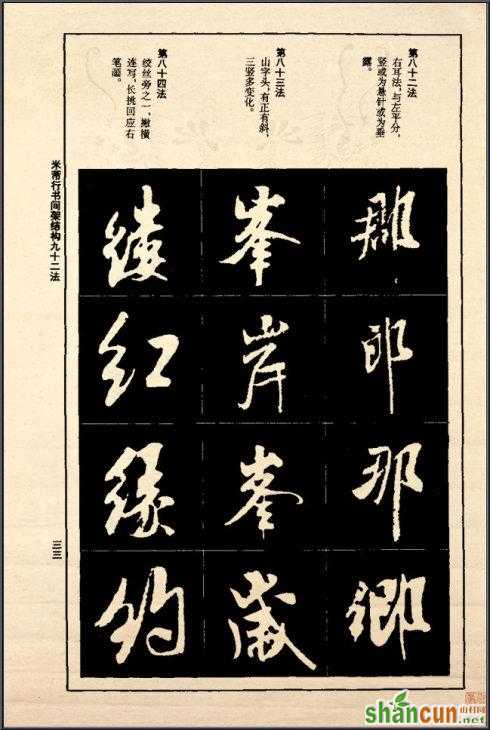 第八十二法
右耳法，与左平分，
竖或为悬针或为垂
露。
第八十三法
山字头，有正有斜，
三竖多变化。
第八十四法
绞丝旁之一，撇横
连写，长挑回应右
笔
郎那卿
峯岸峯歲
紅緣約
米芾行书间架结构九十二法
三三
shancun
山村网
.net